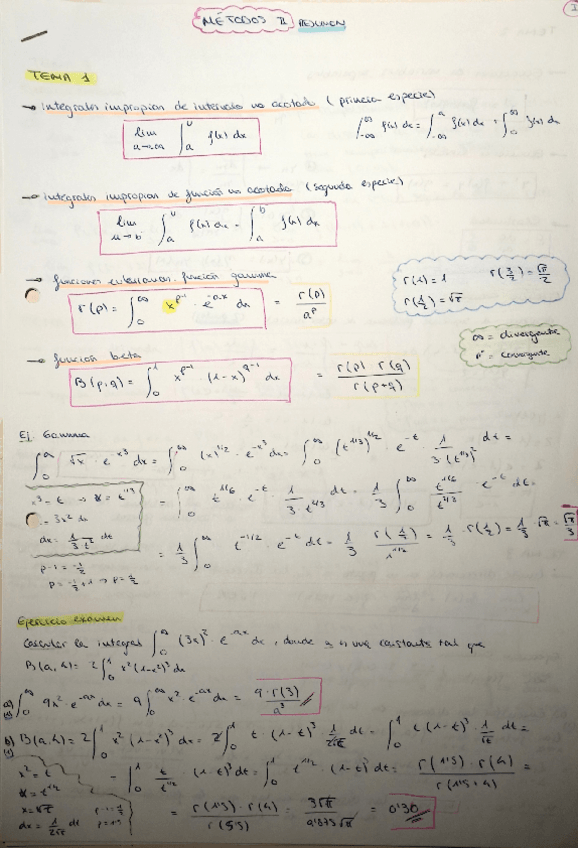 I
MÉTODOS II RESUMEN
TEMA 1
→ integrales impropias de intervalo no acotado (primera especie)
lim a→-∞ ∫_a^b f(x) dx
∫_{-∞}^{∞} f(x) dx = ∫_{-∞}^{a} f(x) dx + ∫_a^{∞} f(x) dx
→ integrales impropias de función no acotada (segunda especie)
lim u→b ∫_a^u f(x) dx = ∫_a^b f(x) dx
→ funciones eulerianas. función gamma
Γ(p) = ∫_0^∞ x^{p-1} e^{-ax} dx = Γ(p) / a^p
Γ(1) = 1 Γ(3/2) = √π/2
Γ(1/2) = √π
∞ = divergente
nº = convergente
→ función beta
B(p,q) = ∫_0^1 x^{p-1} · (1-x)^{q-1} dx = Γ(p) Γ(q) / Γ(p+q)
Ej. Gamma
∫_0^∞ √x · e^{-x³} dx = ∫_0^∞ (x)^{1/2} · e^{-x³} dx = ∫_0^∞ (t^{1/3})^{1/2} · e^{-t} · 1/3(t^{1/3})² dt =
x³ = t → x = t^{1/3}
= 3x² dx
dx = dt
= ∫_0^∞ t^{1/6} · e^{-t} · 1/3 · 1/t^{2/3} dt = 1/3 ∫_0^∞ t^{1/6}/t^{2/3} · e^{-t} dt =
= 1/3 ∫_0^∞ t^{-1/2} · e^{-t} dt = 1/3 Γ(1/2)/1^{1/2} = 1/3 · Γ(1/2) = 1/3 · √π = √π/3
p-1 = -1/2
p = -1/2 + 1 → p = 1/2
Ejercicio examen
Calcular la integral ∫_0^∞ (3x)² · e^{-ax} dx, donde a es una constante tal que
B(a,4) = 2∫_0^1 x²(1-x²)³ dx
a) ∫_0^∞ 9x² · e^{-ax} dx = 9 ∫_0^∞ x² · e^{-ax} dx = 9·Γ(3) / a³
b) B(a,4) = 2∫_0^1 x² (1-x²)³ dx = 2∫_0^1 t · (1-t)³ 1/2√t dt = ∫_0^1 t (1-t)³ · 1/√t dt =
x² = t
x = t^{1/2}
x = √t
dx = 1/2√t dt
p-1 = 1/2
p = 1'5
= ∫_0^1 t/t^{1/2} · (1-t)³ dt = ∫_0^1 t^{1/2} · (1-t)³ dt = Γ(1'5) · Γ(4) / Γ(1'5+4) =
= Γ(1'5) · Γ(4) / Γ(5'5) = = 0'30